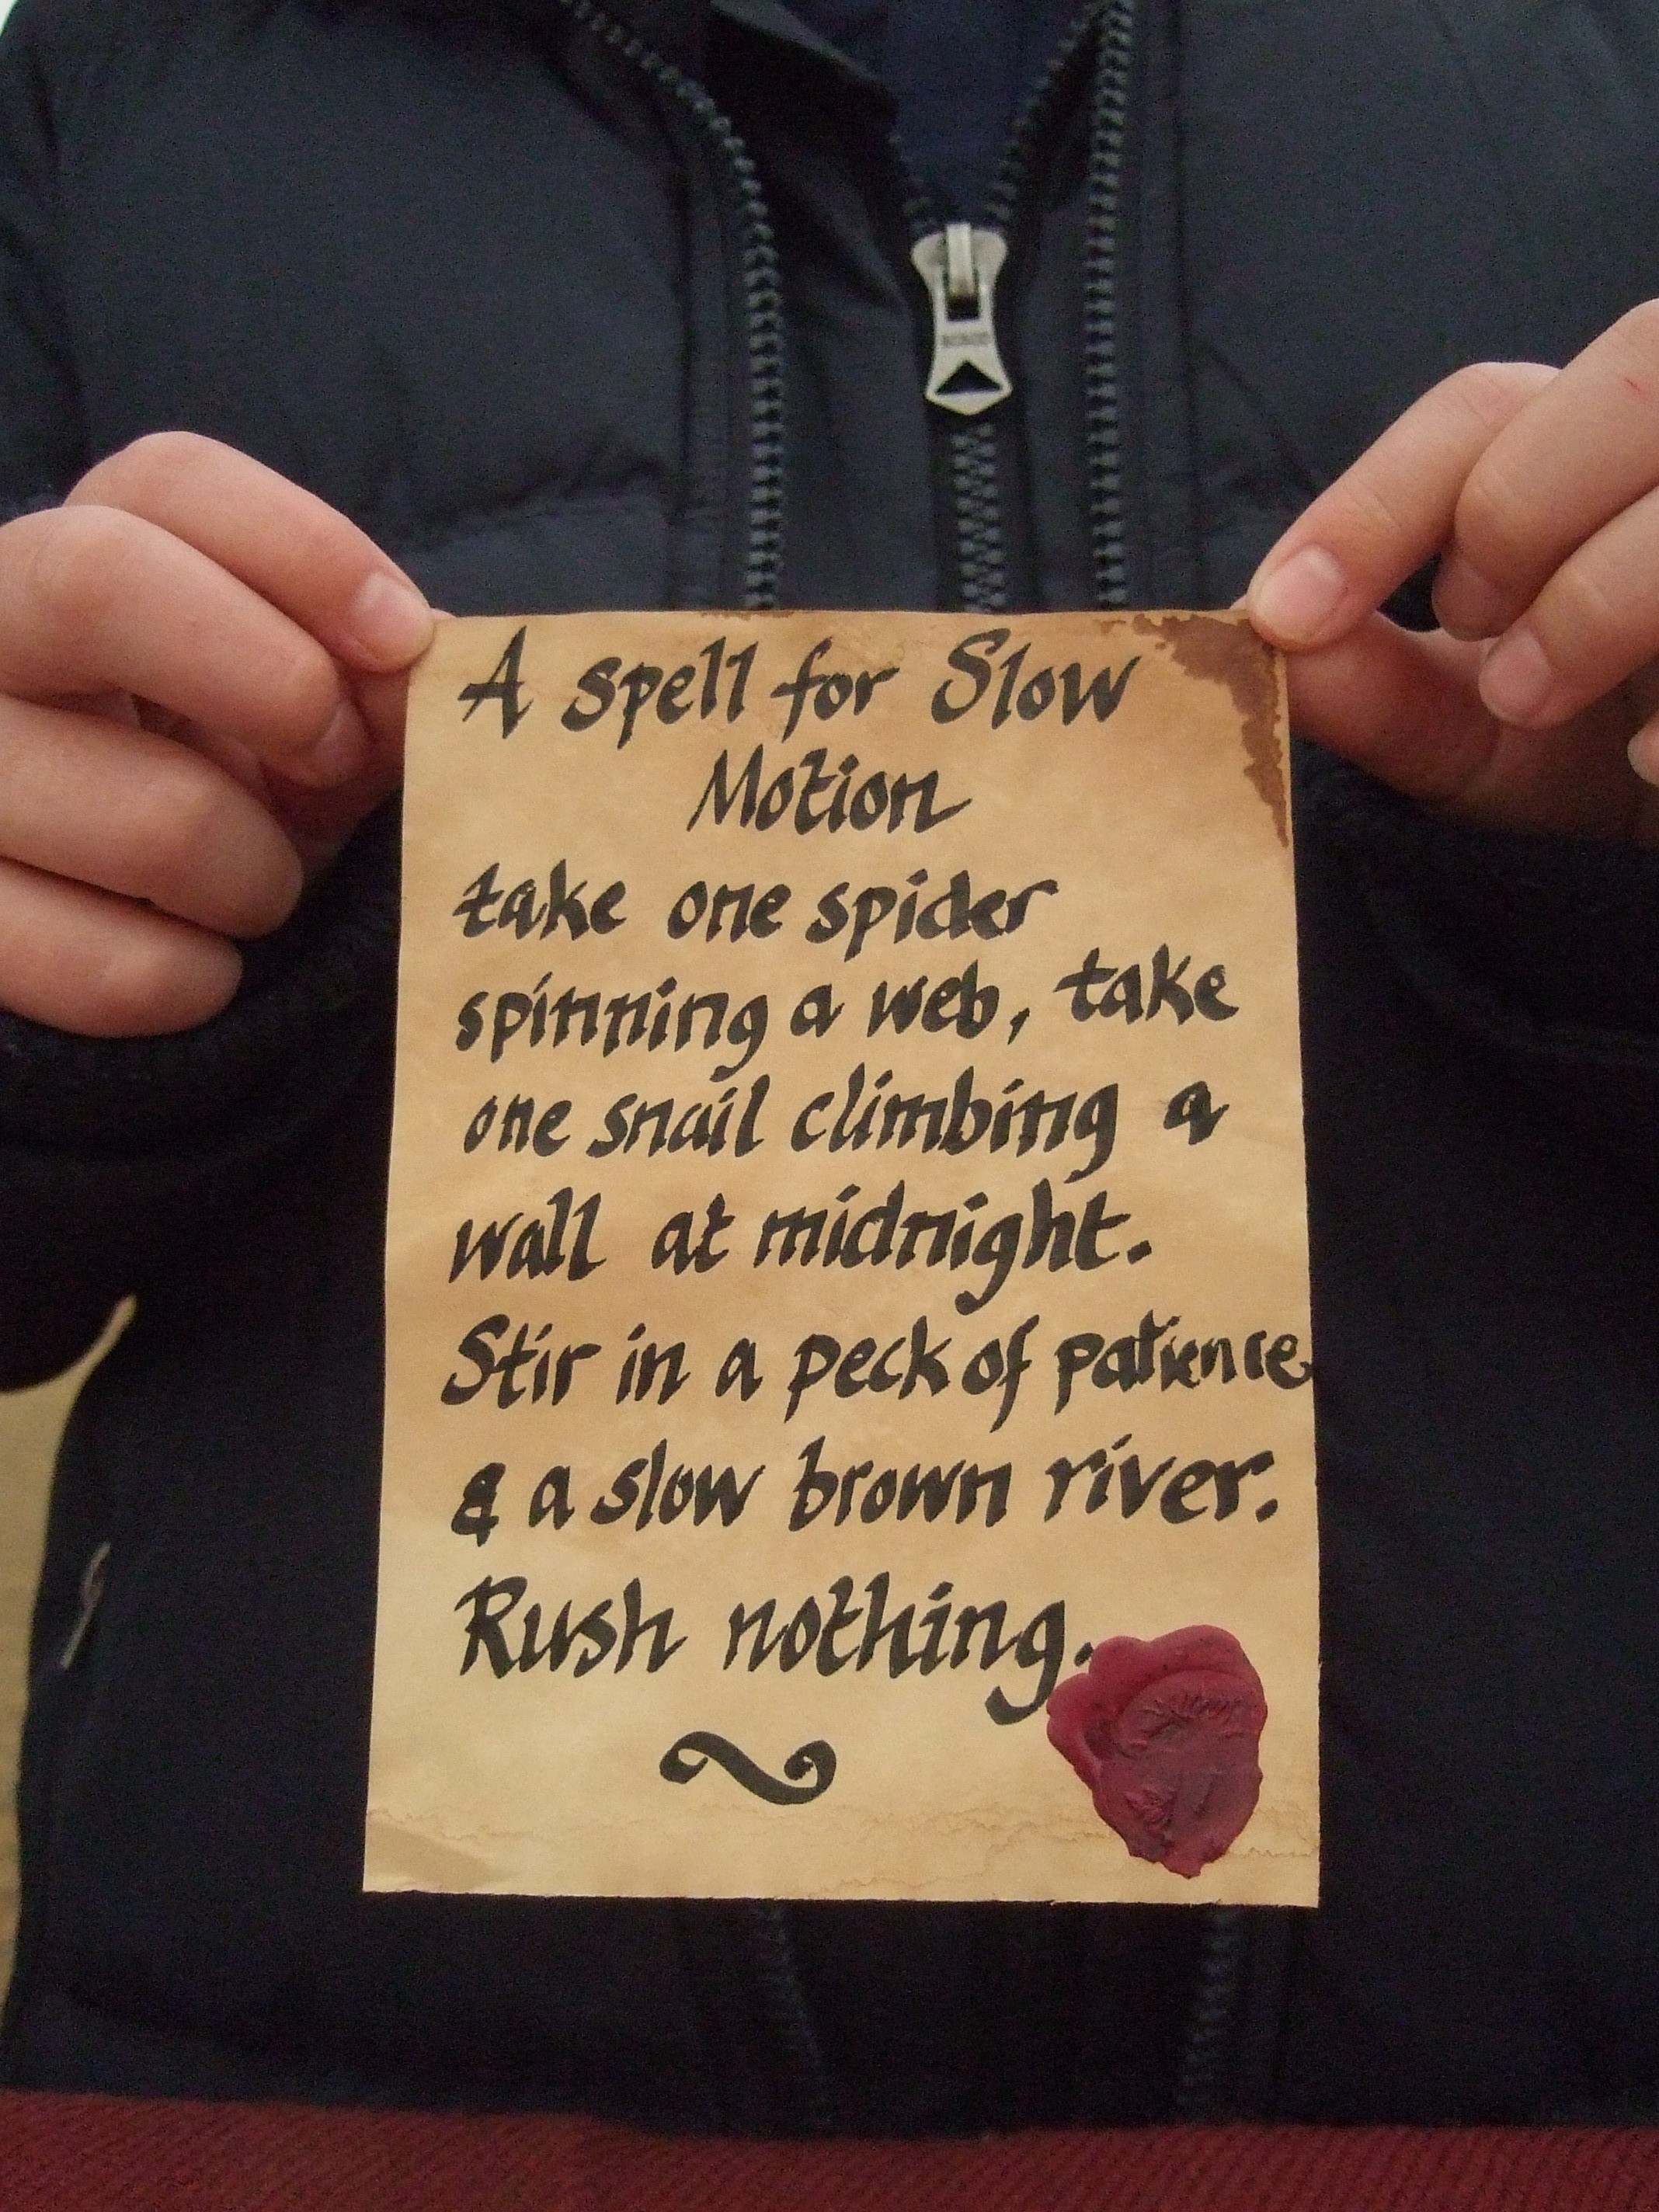 A spell for Slow
Motion
take one spider
spinning a web, take
one snail climbing a
wall at midnight.
Stir in a peck of patience
& a slow brown river.
Rush nothing.